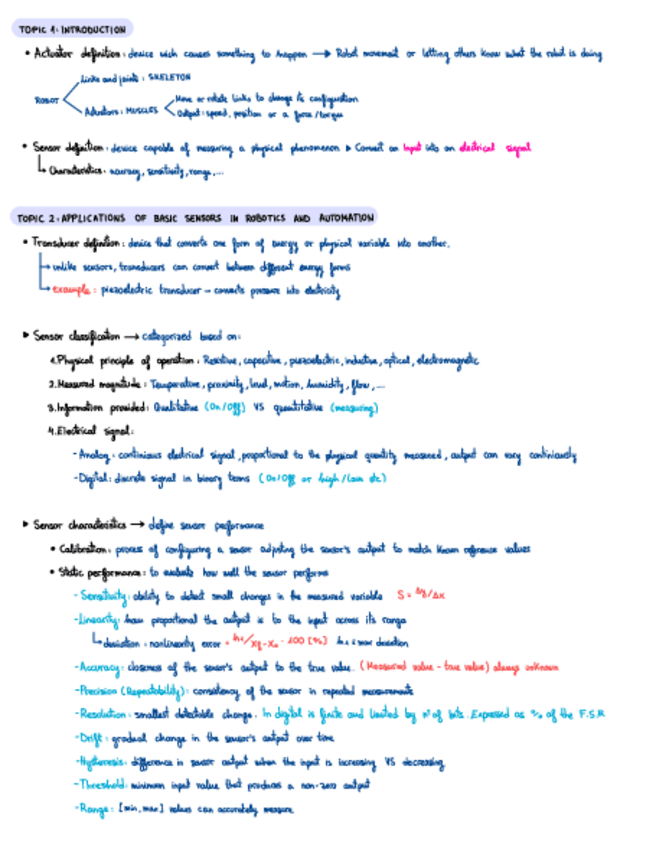 TOPIC 1: INTRODUCTION
• Actuator definition: device wich causes something to happen → Robot movement or letting others know what the robot is doing
Links and joints: SKELETON
ROBOT
Actuators: MUSCLES
Move or rotate links to change its configuration
Output: speed, position or a force/torque
• Sensor definition: device capable of measuring a physical phenomenon ▸ Convert an input into an electrical signal
Characteristics: accuracy, sensitivity, range,...
TOPIC 2: APPLICATIONS OF BASIC SENSORS IN ROBOTICS AND AUTOMATION
• Transducer definition: device that converts one form of energy or physical variable into another.
unlike sensors, transducers can convert between different energy forms
example: piezoelectric transducer - converts pressure into electricity
▸ Sensor classification → categorized based on:
1. Physical principle of operation: Resistive, capacitive, piezoelectric, inductive, optical, electromagnetic
2. Measured magnitude: Temperature, proximity, level, motion, humidity, flow,...
3. Information provided: Qualitative (On/Off) VS quantitative (measuring)
4. Electrical signal:
- Analog: continuous electrical signal, proportional to the physical quantity measured, output can vary continuously
- Digital: discrete signal in binary terms (On/Off or high/low etc)
▸ Sensor characteristics → define sensor performance
• Calibration: process of configuring a sensor adjusting the sensor's output to match known reference values
• Static performance: to evaluate how well the sensor performs
- Sensitivity: ability to detect small changes in the measured variable S = Δy/Δx
- Linearity: how proportional the output is to the input across its range
deviation: nonlinearity error = · 100 [%] max deviation
- Accuracy: closeness of the sensor's output to the true value. (Measured value - true value) always unknown
- Precision (Repeatability): consistency of the sensor in repeated measurements
- Resolution: smallest detectable change. In digital is finite and limited by nº of bits. Expressed as % of the F.S.R
- Drift: gradual change in the sensor's output over time
- Hysteresis: difference in sensor output when the input is increasing VS decreasing
- Threshold: minimum input value that produces a non-zero output
- Range: [min, max] values can accurately measure